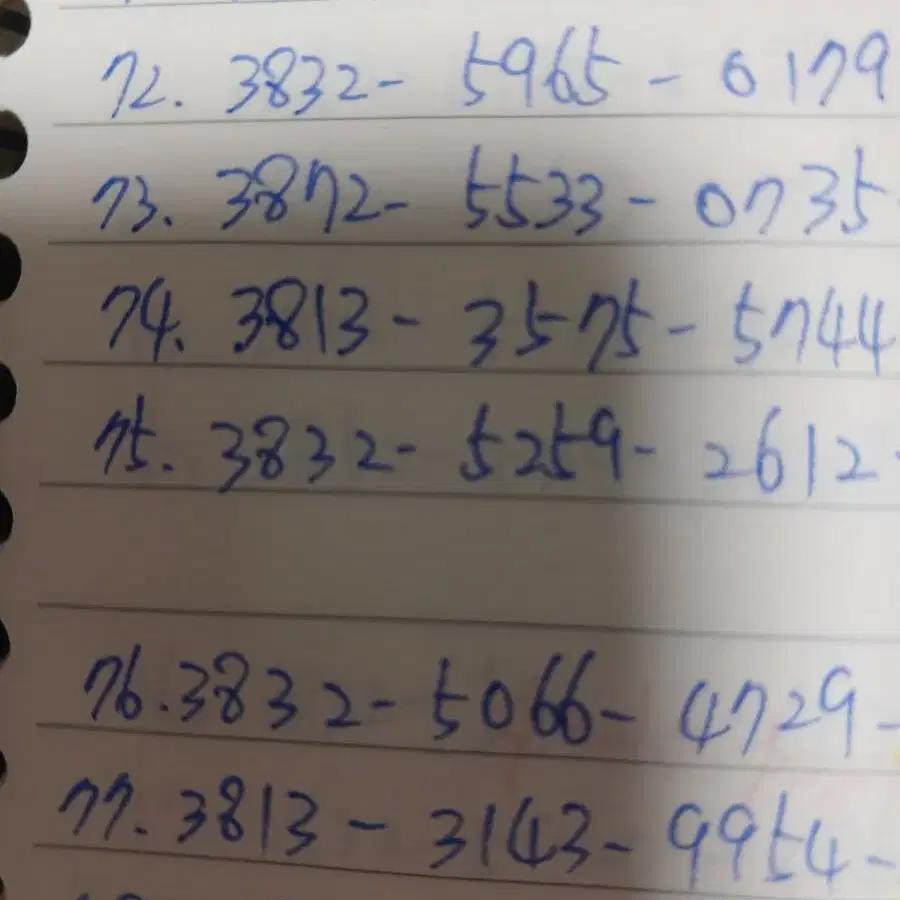 72. 3832- 5965 - 0179
73. 3872- 5533 - 0735-
74. 3813 - 3575 - 5744
75. 3832- 5259- 2612-
76. 3832- 5066- 4729-
77. 3813 - 3143- 9954-